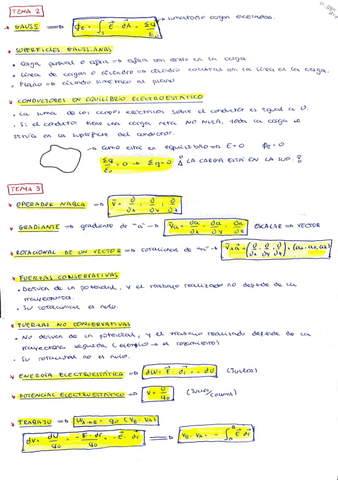 TEMA 2
GAUSS => Φe = ∮s E · dA = Σq/ε₀ → sumatorio cargas encerradas.
SUPERFICIES GAUSSIANAS
• Carga puntual o esfera → esfera con centro en la carga
• Línea de cargas o cilindro → cilindro coaxial con la línea de la carga.
• Plano → cilindro simétrico al plano
CONDUCTORES EN EQUILIBRIO ELECTROESTÁTICO
• La suma de los campos eléctricos sobre el conductor es igual a 0.
• Si el conductor tiene una carga neta NO NULA, toda la carga se
sitúa en la superficie del conductor.
→ Como está en equilibrio => E = 0 Φe = 0
Σq/ε₀ = 0 → Σq = 0 LA CARGA ESTÁ EN LA SUP.
TEMA 3
OPERADOR NABLA => ∇ = ∂/∂x , ∂/∂y , ∂/∂z
GRADIANTE => gradiente de "a" => ∇a = ∂a/∂x , ∂a/∂y , ∂a/∂z ESCALAR → VECTOR
ROTACIONAL DE UN VECTOR => rotacional de "a" => ∇×a = (∂/∂x , ∂/∂y , ∂/∂z) × (ax, ay, az)
FUERZAS CONSERVATIVAS
• Derivan de un potencial, y el trabajo realizado no depende de la
trayectoria.
• Su rotacional es nulo.
FUERZAS NO CONSERVATIVAS
• No derivan de un potencial, y el trabajo realizado depende de la
trayectoria seguida (ejemplo → el rozamiento)
• Su rotacional no es nulo.
ENERGÍA ELECTROESTÁTICA => dW = F · dr = -dU (Julios)
POTENCIAL ELECTROESTÁTICO => V = U/q₀ (Julio/Coulomb)
TRABAJO => WA→B = -q₀ (VB - VA)
dV = dU/q₀ = -F · dr/q₀ = -E · dr => VB - VA = -∫ E dr